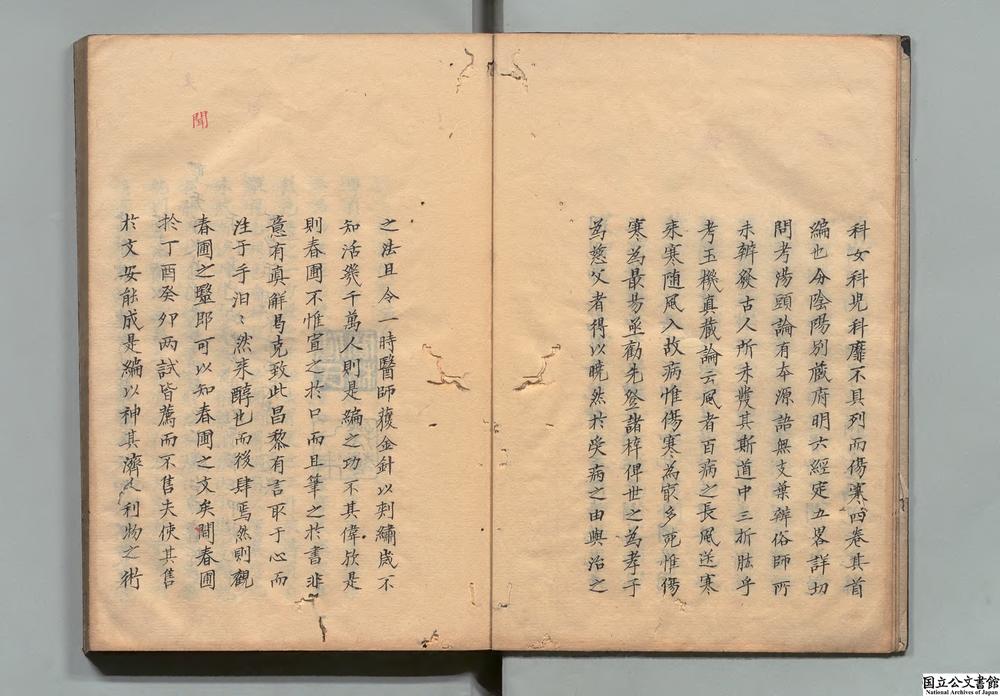 科女科児科靡不具列而傷寒四卷其首
編也分陰陽別蔵府明六經定五畧詳切
問考湯頭論有本源語無支葉辨俗師所
未辨發古人所未發其斯道中三折肱乎
考玉機真蔵論云風者百病之長風送寒
来寒随風入故病惟傷寒為最多死惟傷
寒為最易亟勸先登諸梓俾世之為孝子
為慈父者得以曉然於受病之由與治之
之法且令一時醫師獲金針以刺繡歳不
知活幾千萬人則是編之功不其偉歟是
則春圃不惟宣之於口而且筆之於書非
意有真解曷克致此昌黎有言取于心而
注于手汩〻然来醇也而後肆焉然則觀
春圃之醫即可以知春圃之文矣聞春圃
於丁酉癸夘两試皆薦而不售夫使其售
於文安能成是編以神其濟人利物之術
聞
国立公文書館
National Archives of Japan